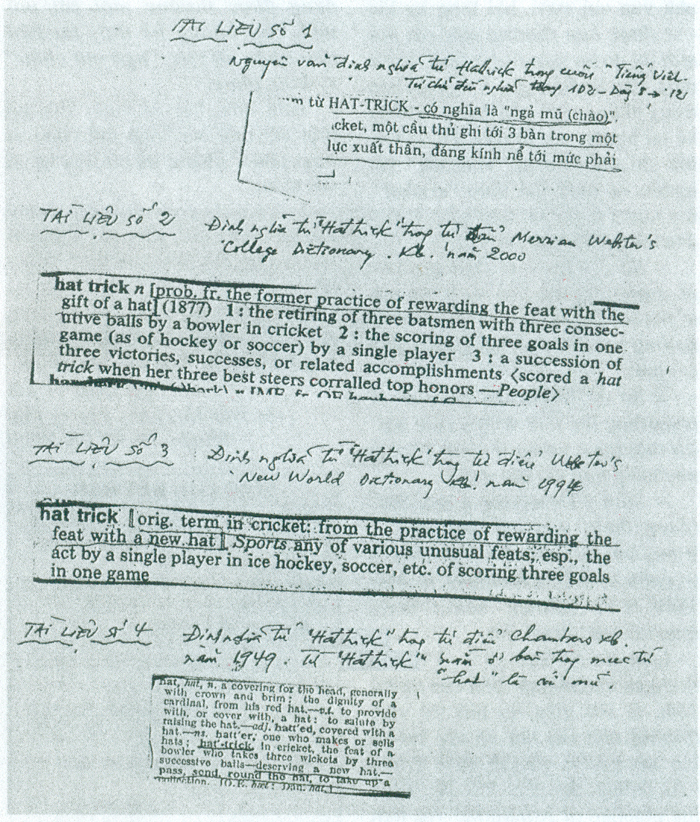 TÀI LIỆU SỐ 1
Nguyên văn định nghĩa từ Hattrick trong cuốn "Tiếng Việt
từ HAT-TRICK - có nghĩa là "ngả mũ (chào)".
cket, một cầu thủ ghi tới 3 bàn trong một
lực xuất thần, đáng kính nể tới mức phải
TÀI LIỆU SỐ 2
Định nghĩa từ "Hattrick" trong từ điển Merrian Webster's
College Dictionary. Xb. năm 2000
hat trick n [prob. fr. the former practice of rewarding the feat with the
gift of a hat] (1877) 1 : the retiring of three batsmen with three consec-
utive balls by a bowler in cricket 2 : the scoring of three goals in one
game (as of hockey or soccer) by a single player 3 : a succession of
three victories, successes, or related accomplishments ⟨scored a hat
trick when her three best steers corralled top honors —People⟩
TÀI LIỆU SỐ 3
Định nghĩa từ "Hattrick" trong từ điển Webster's
New World Dictionary xb. năm 1994
hat trick [orig. term in cricket: from the practice of rewarding the
feat with a new hat] Sports any of various unusual feats; esp., the
act by a single player in ice hockey, soccer, etc. of scoring three goals
in one game
TÀI LIỆU SỐ 4
Định nghĩa từ "Hattrick" trong từ điển Chambers xb.
năm 1949. Từ "Hattrick" nằm ở bài trong mục từ
"hat" là cái mũ
hat, hat, n. a covering for the head, generally
with crown and brim: the dignity of a
cardinal, from his red hat.—v.t. to provide
with, or cover with, a hat: to salute by
raising the hat.—adj. hatt'ed, covered with a
hat.—ns. hatt'er, one who makes or sells
hats; hat-trick, in cricket, the feat of a
bowler who takes three wickets by three
successive balls—deserving a new hat.—
pass, send, round the hat, to take up a